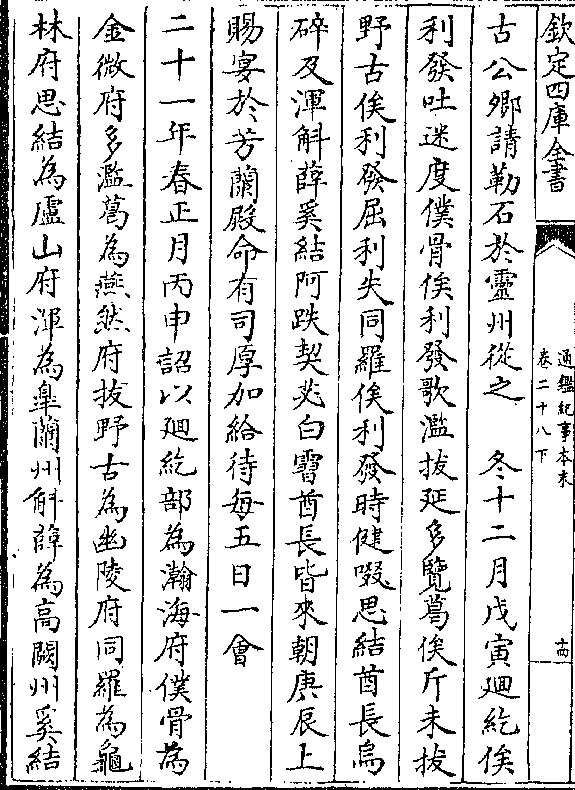 欽定四庫全書
通鑑紀事本末
卷二十八下
十四
古公卿請勒石於靈州從之　冬十二月戊寅廻紇俟
利發吐迷度僕骨俟利發歌濫拔延多覽葛俟斤末拔
野古俟利發屈利失同羅俟利發時健啜思結酋長烏
碎及渾斛薛奚結阿跌契苾白霫酋長皆來朝庚辰上
賜宴於芳蘭殿命有司厚加給待每五日一會
二十一年春正月丙申詔以廻紇部為瀚海府僕骨為
金微府多濫葛為燕然府拔野古為幽陵府同羅為龜
林府思結為盧山府渾為臯蘭州斛薛為高闕州奚結